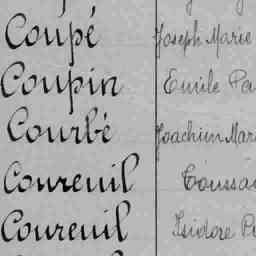 Coupé Joseph Marie
Coupin Emile
Courbé Joachim
Coureuil
Coureuil Isidore